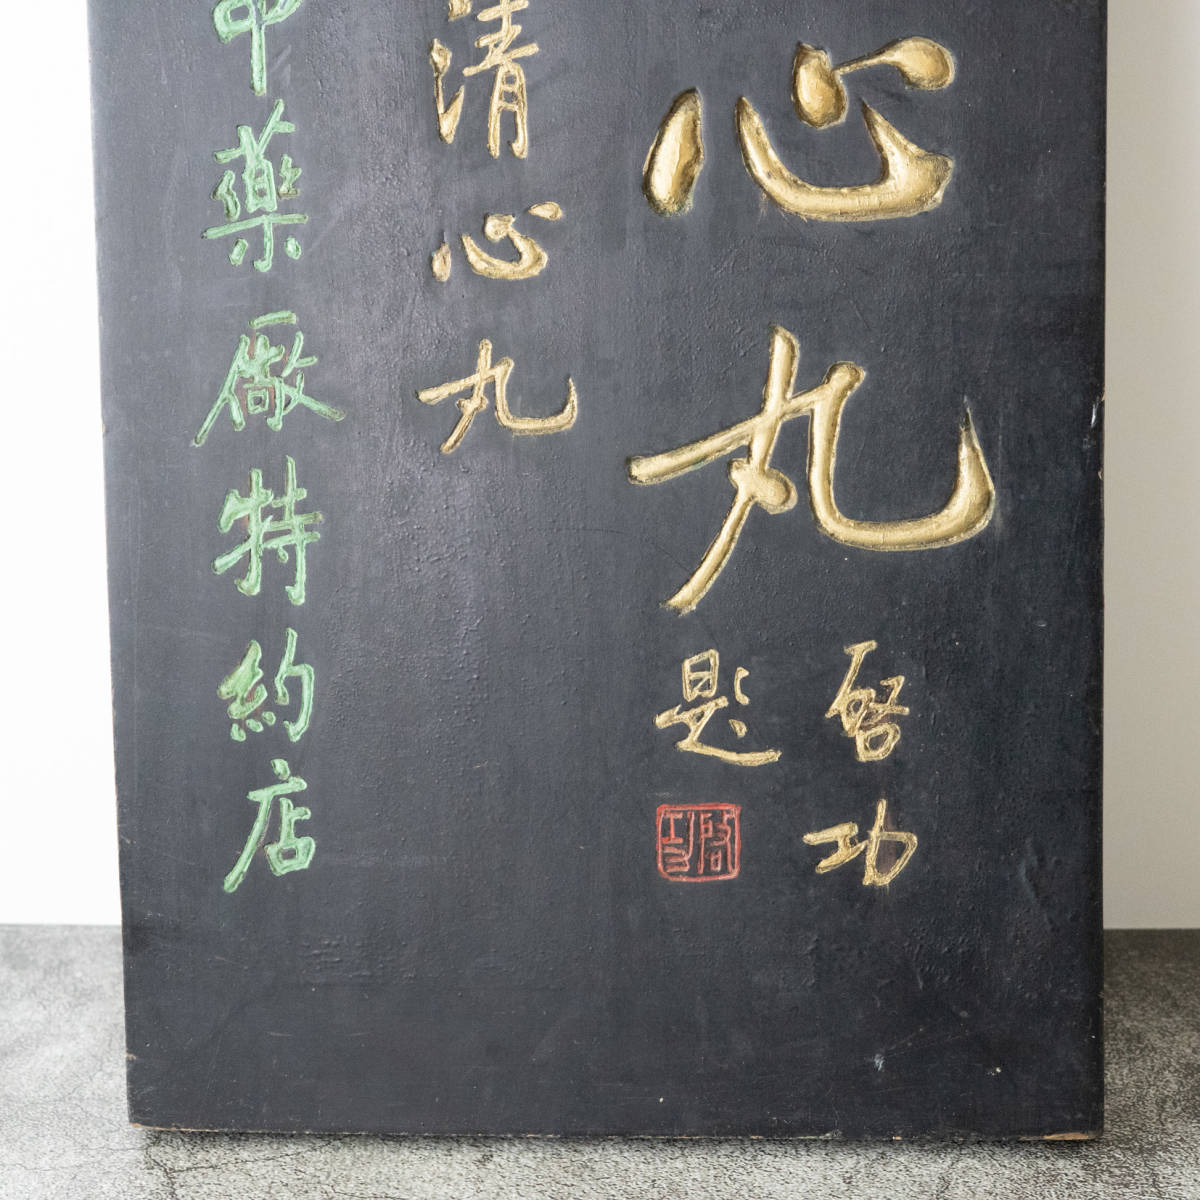 心丸
啓功
題
啓功
清心丸
中藥廠特約店